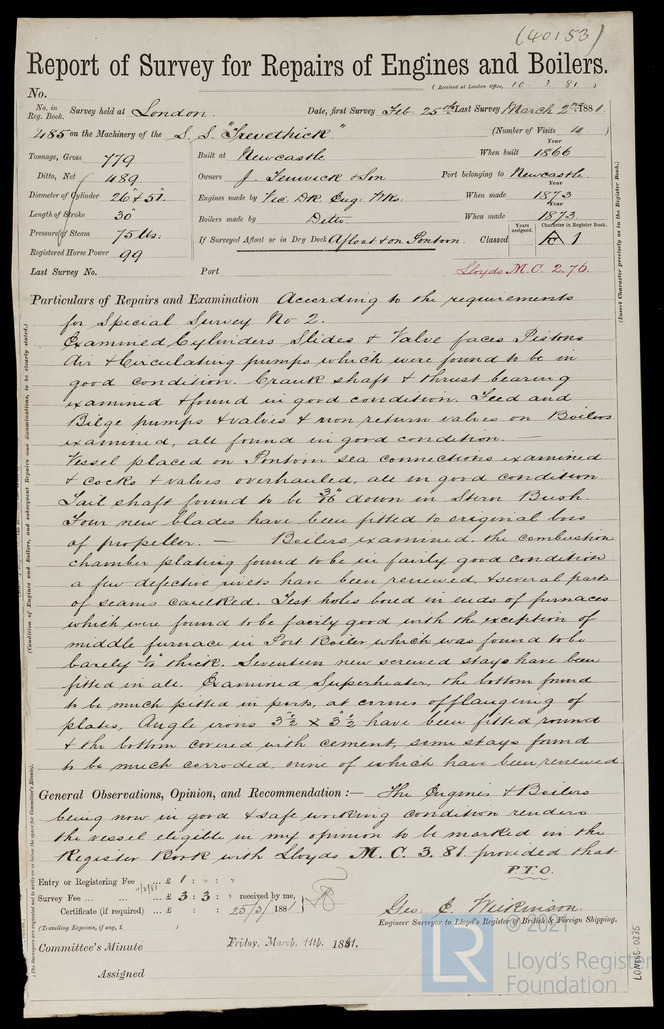 (40153)
Report of Survey for Repairs of Engines and Boilers.
(Received at London Office, 10 3 81)
No.
No. in Reg. Book. Survey held at London. Date, first Survey Feb. 25th Last Survey March 2nd 1881.
485 on the Machinery of the S.S. "Trevethick" (Number of Visits 4)
Tonnage, Gross 779 Built at Newcastle When built Year 1866
Ditto, Net 489 Owners J. Fenwick & Son Port belonging to Newcastle.
Diameter of Cylinder 26" & 51" Engines made by Vic. Dk. Eng. Wks. When made Year 1873
Length of Stroke 30" Boilers made by Ditto. When made Year 1873
Pressure of Steam 75 lbs. If Surveyed Afloat or in Dry Dock Afloat & on Pontoon. Classed Years assigned. Character in Register Book. 1
Registered Horse Power 99
Last Survey No. Port Lloyds M.C. 2.76.
(Insert Character precisely as in the Register Book.)
Particulars of Repairs and Examination According to the requirements
for Special Survey No 2.
Examined Cylinders Slides & Valve faces Pistons
Air & Circulating pumps which were found to be in
good condition. Crank shaft & thrust bearing
examined & found in good condition. Feed and
Bilge pumps & valves & non return valves on Boilers
examined, all found in good condition. —
Vessel placed on Pontoon sea connections examined
& cocks & valves overhauled, all in good condition.
Tail shaft found to be 3/16" down in Stern Bush.
Four new blades have been fitted to original boss
of propeller. — Boilers examined, the combustion
chamber plating found to be in fairly good condition
a few defective rivets have been renewed, & several parts
of seams caulked. Test holes bored in ends of furnaces
which were found to be fairly good with the exception of
middle furnace in Port Boiler which was found to be
barely thick. Seventeen new screwed stays have been
fitted in all. Examined Superheater, the bottom found
to be much pitted in parts, at corners of flanging of
plates, Angle irons 3½" x 3½" have been fitted round
& the bottom covered with cement, some stays found
to be much corroded, nine of which have been renewed
General Observations, Opinion, and Recommendation :— The Engines & Boilers
being now in good & safe working condition renders
the vessel eligible in my opinion to be marked in the
Register Book with Lloyds M.C. 3.81. provided that
P.T.O.
Entry or Registering Fee ... £ 1 : :
Survey Fee ... ... £ 3 : 3 : received by me,
Certificate (if required) ... £ : : 25/3/ 1881
(Travelling Expenses, if any, £ )
Geo. E. Wilkinson.
Engineer Surveyor to Lloyd's Register of British & Foreign Shipping.
Committee's Minute Friday, March, 11th. 1881.
Assigned
LON666-0235
LR
© 2021
Lloyd's Register
Foundation